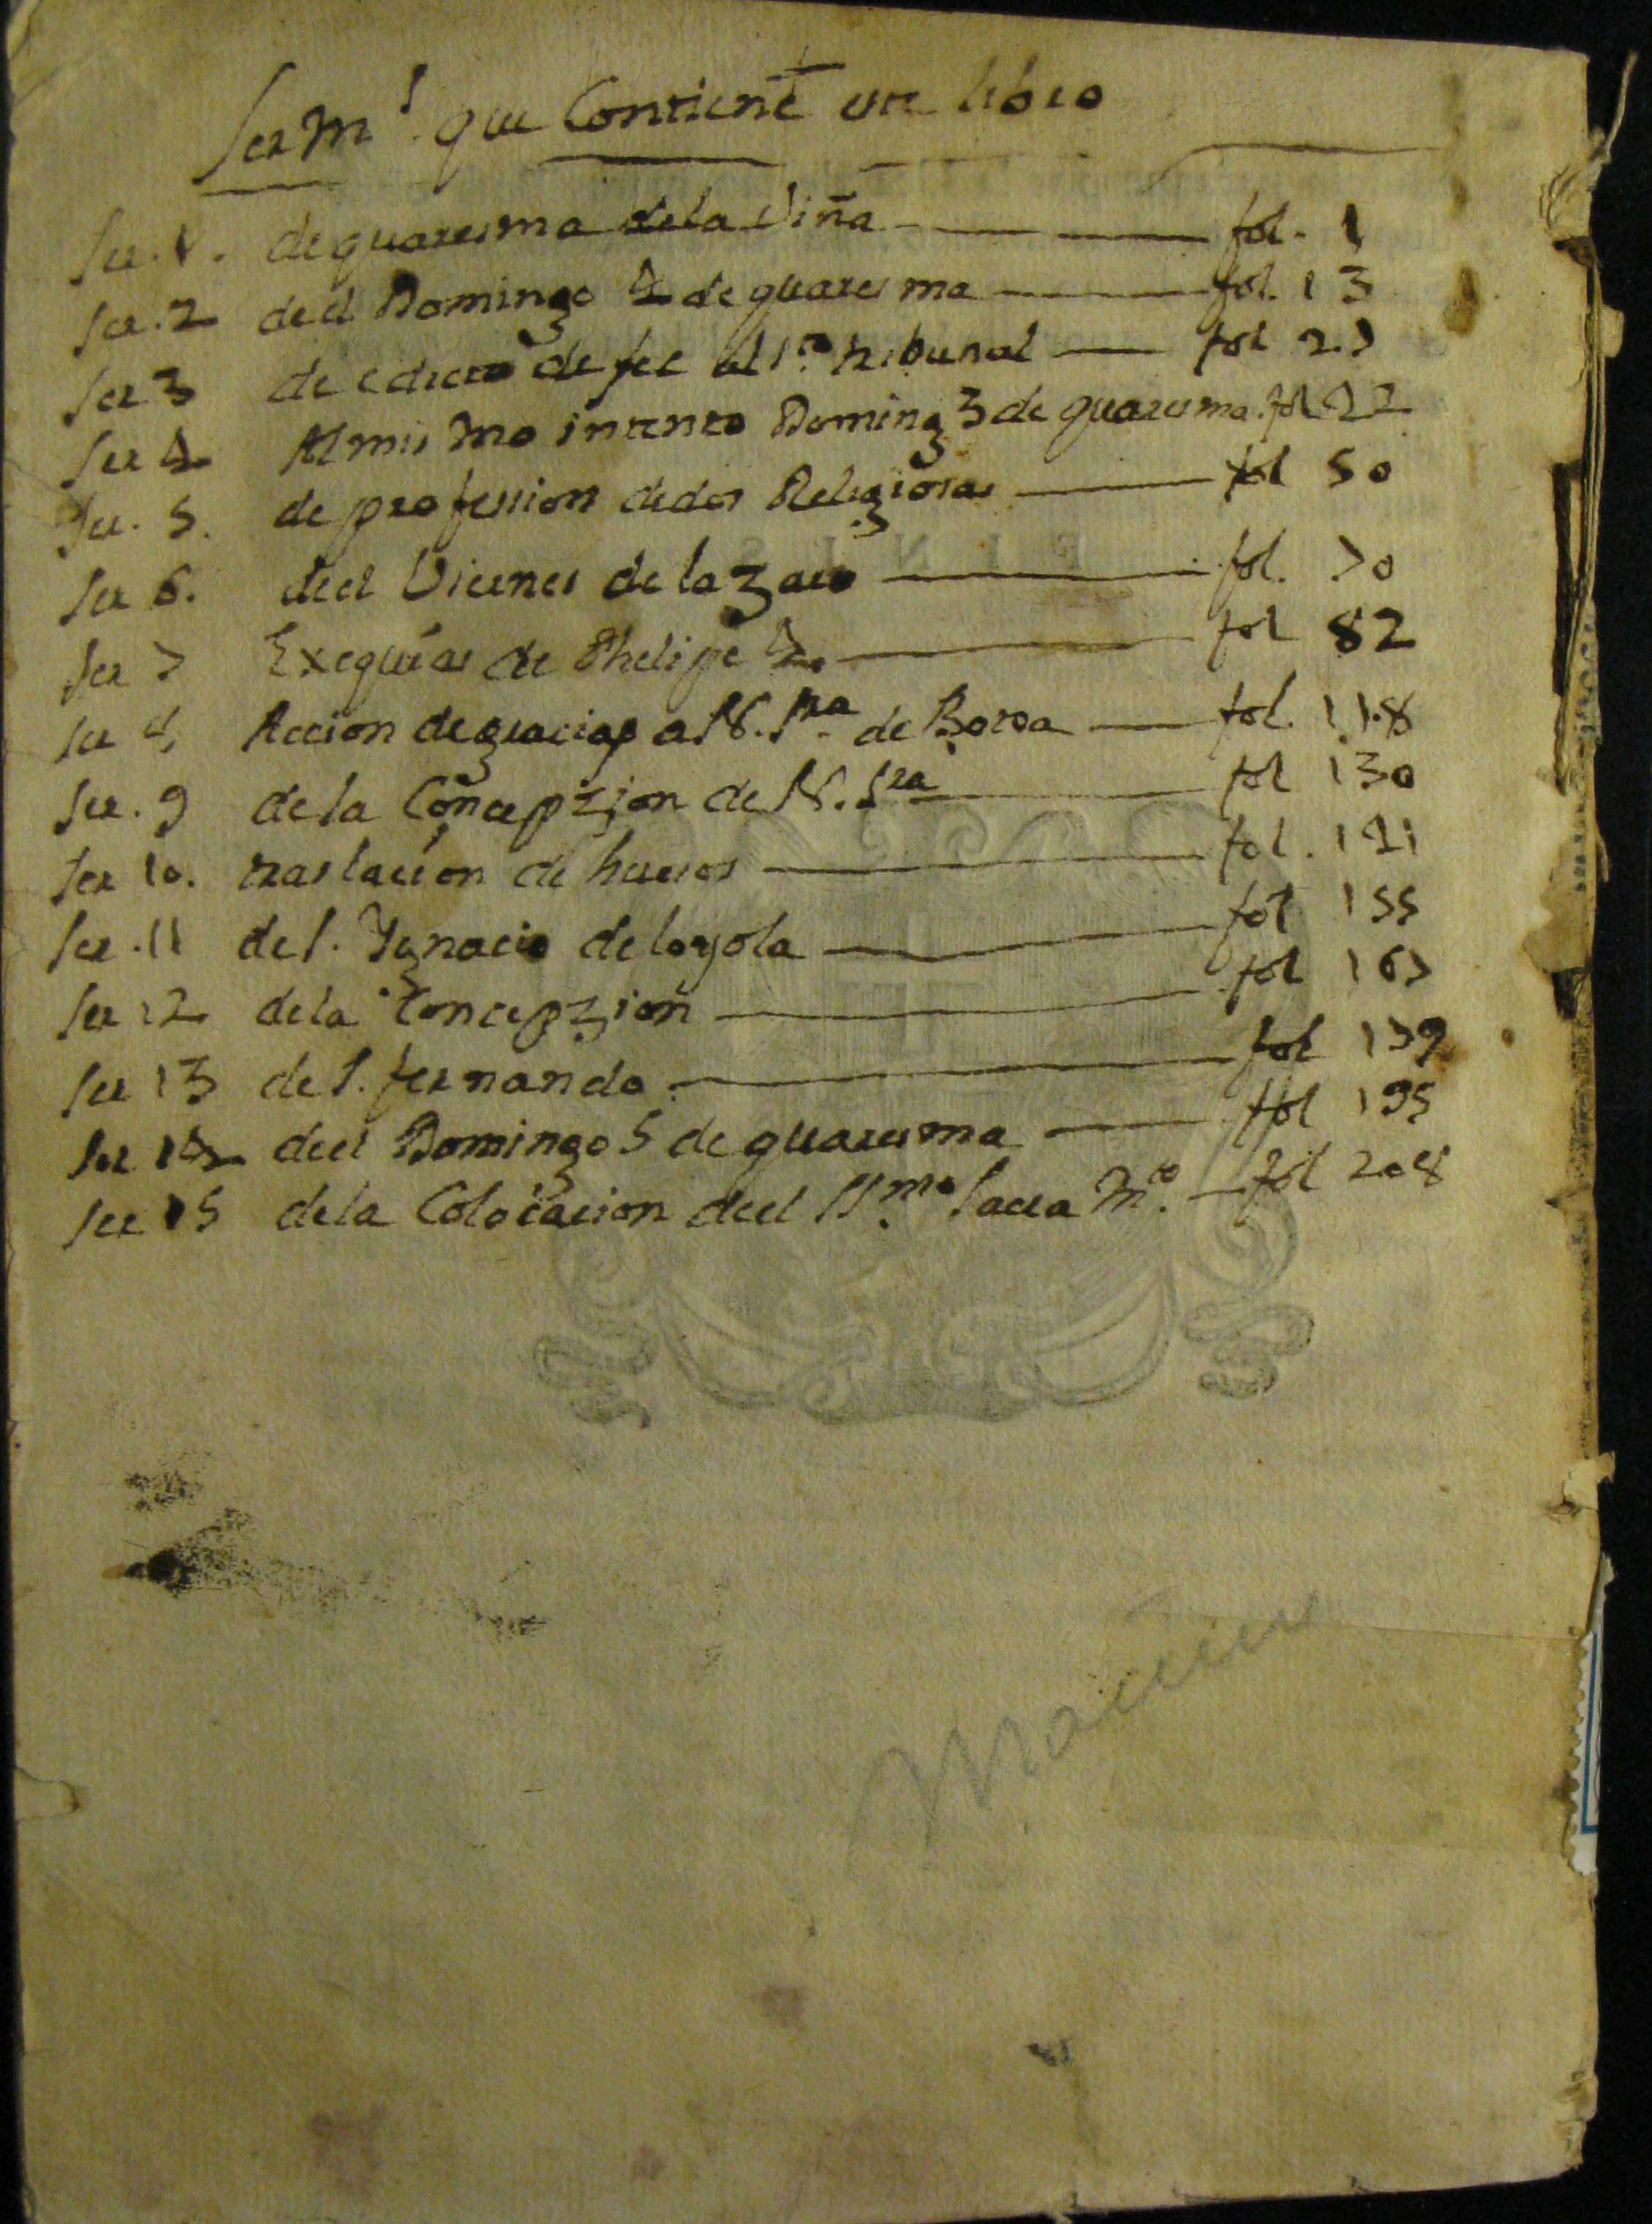 Serm.s que Contiene este libro
Ser. 1. de quaresma de la Viña fol. 1
Ser. 2 de el Domingo 4 de quaresma fol. 13
Ser 3 de edicto de fee al S.to tribunal fol 27
Ser 4 Al mismo intento Doming 3 de quaresma. fol
Ser. 5. de profession de dos Religiosas fol 50
Ser 6. de el Viernes de lazaro fol. 70
Ser 7 Exequias de Phelipe 4. fol 82
Ser 8 Accion de gracias a N. Sra. de fol. 118
Ser. 9 de la Concepzion de N. Sra fol 130
Ser 10. traslacion de huesos fol. 141
Ser. 11 de S. Ygnacio de loyola fol 155
Ser 12 de la Concepzion fol 167
Ser 13 de S. fernando fol 179
Ser 14 de el Domingo 5 de quaresma fol 195
Ser 15 de la Colocacion de el SS.mo Sacra M.to fol 208